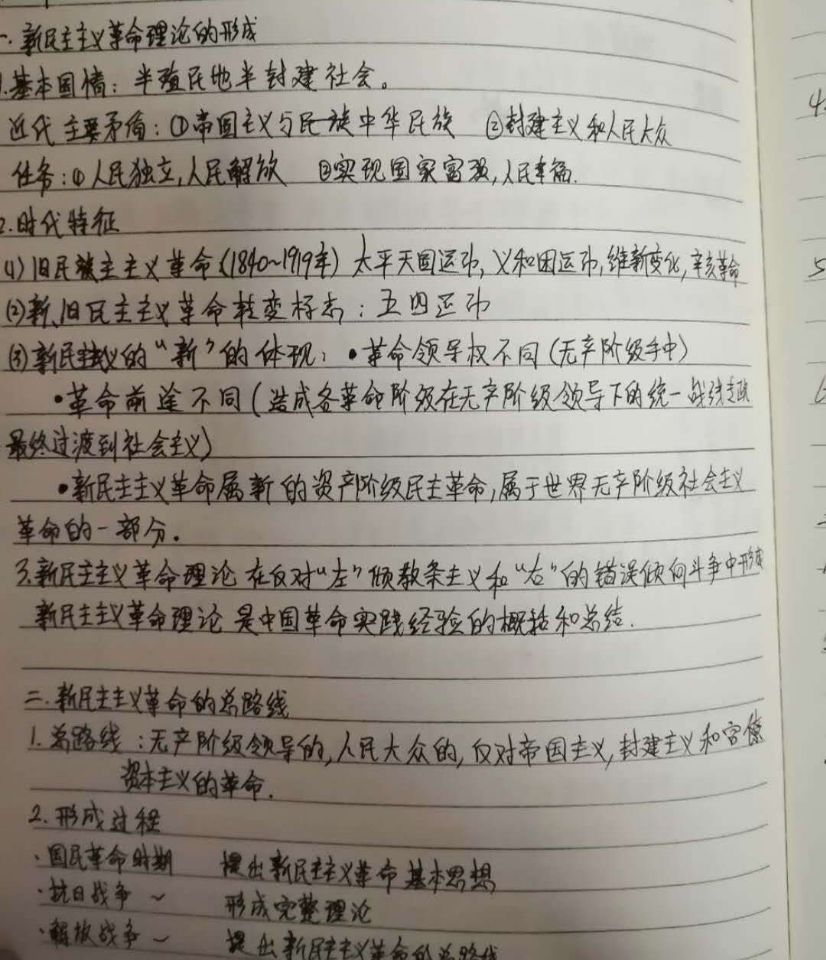 一.新民主主义革命理论的形成
1.基本国情：半殖民地半封建社会。
近代主要矛盾：①帝国主义与民族中华民族 ②封建主义和人民大众
任务：①人民独立,人民解放 ②实现国家富强,人民幸福.
2.时代特征
(1)旧民族主主义革命(1840~1919年) 太平天国运动,义和团运动,维新变化,辛亥革命
(2)新、旧民主主义革命转变标志：五四运动
(3)新民主主义的“新”的体现：•革命领导权不同(无产阶级手中)
•革命前途不同(造成各革命阶级在无产阶级领导下的统一战线专政
最终过渡到社会主义)
•新民主主义革命属新的资产阶级民主革命,属于世界无产阶级社会主义
革命的一部分.
3.新民主主义革命理论在反对“左”倾教条主义和“右”的错误倾向斗争中形成
新民主主义革命理论是中国革命实践经验的概括和总结.
二.新民主主义革命的总路线
1.总路线：无产阶级领导的,人民大众的,反对帝国主义,封建主义和官僚
资本主义的革命.
2.形成过程
·国民革命时期 提出新民主主义革命基本思想
·抗日战争 ~ 形成完整理论
·解放战争 ~ 提出新民主主义革命的总路线
4.
5